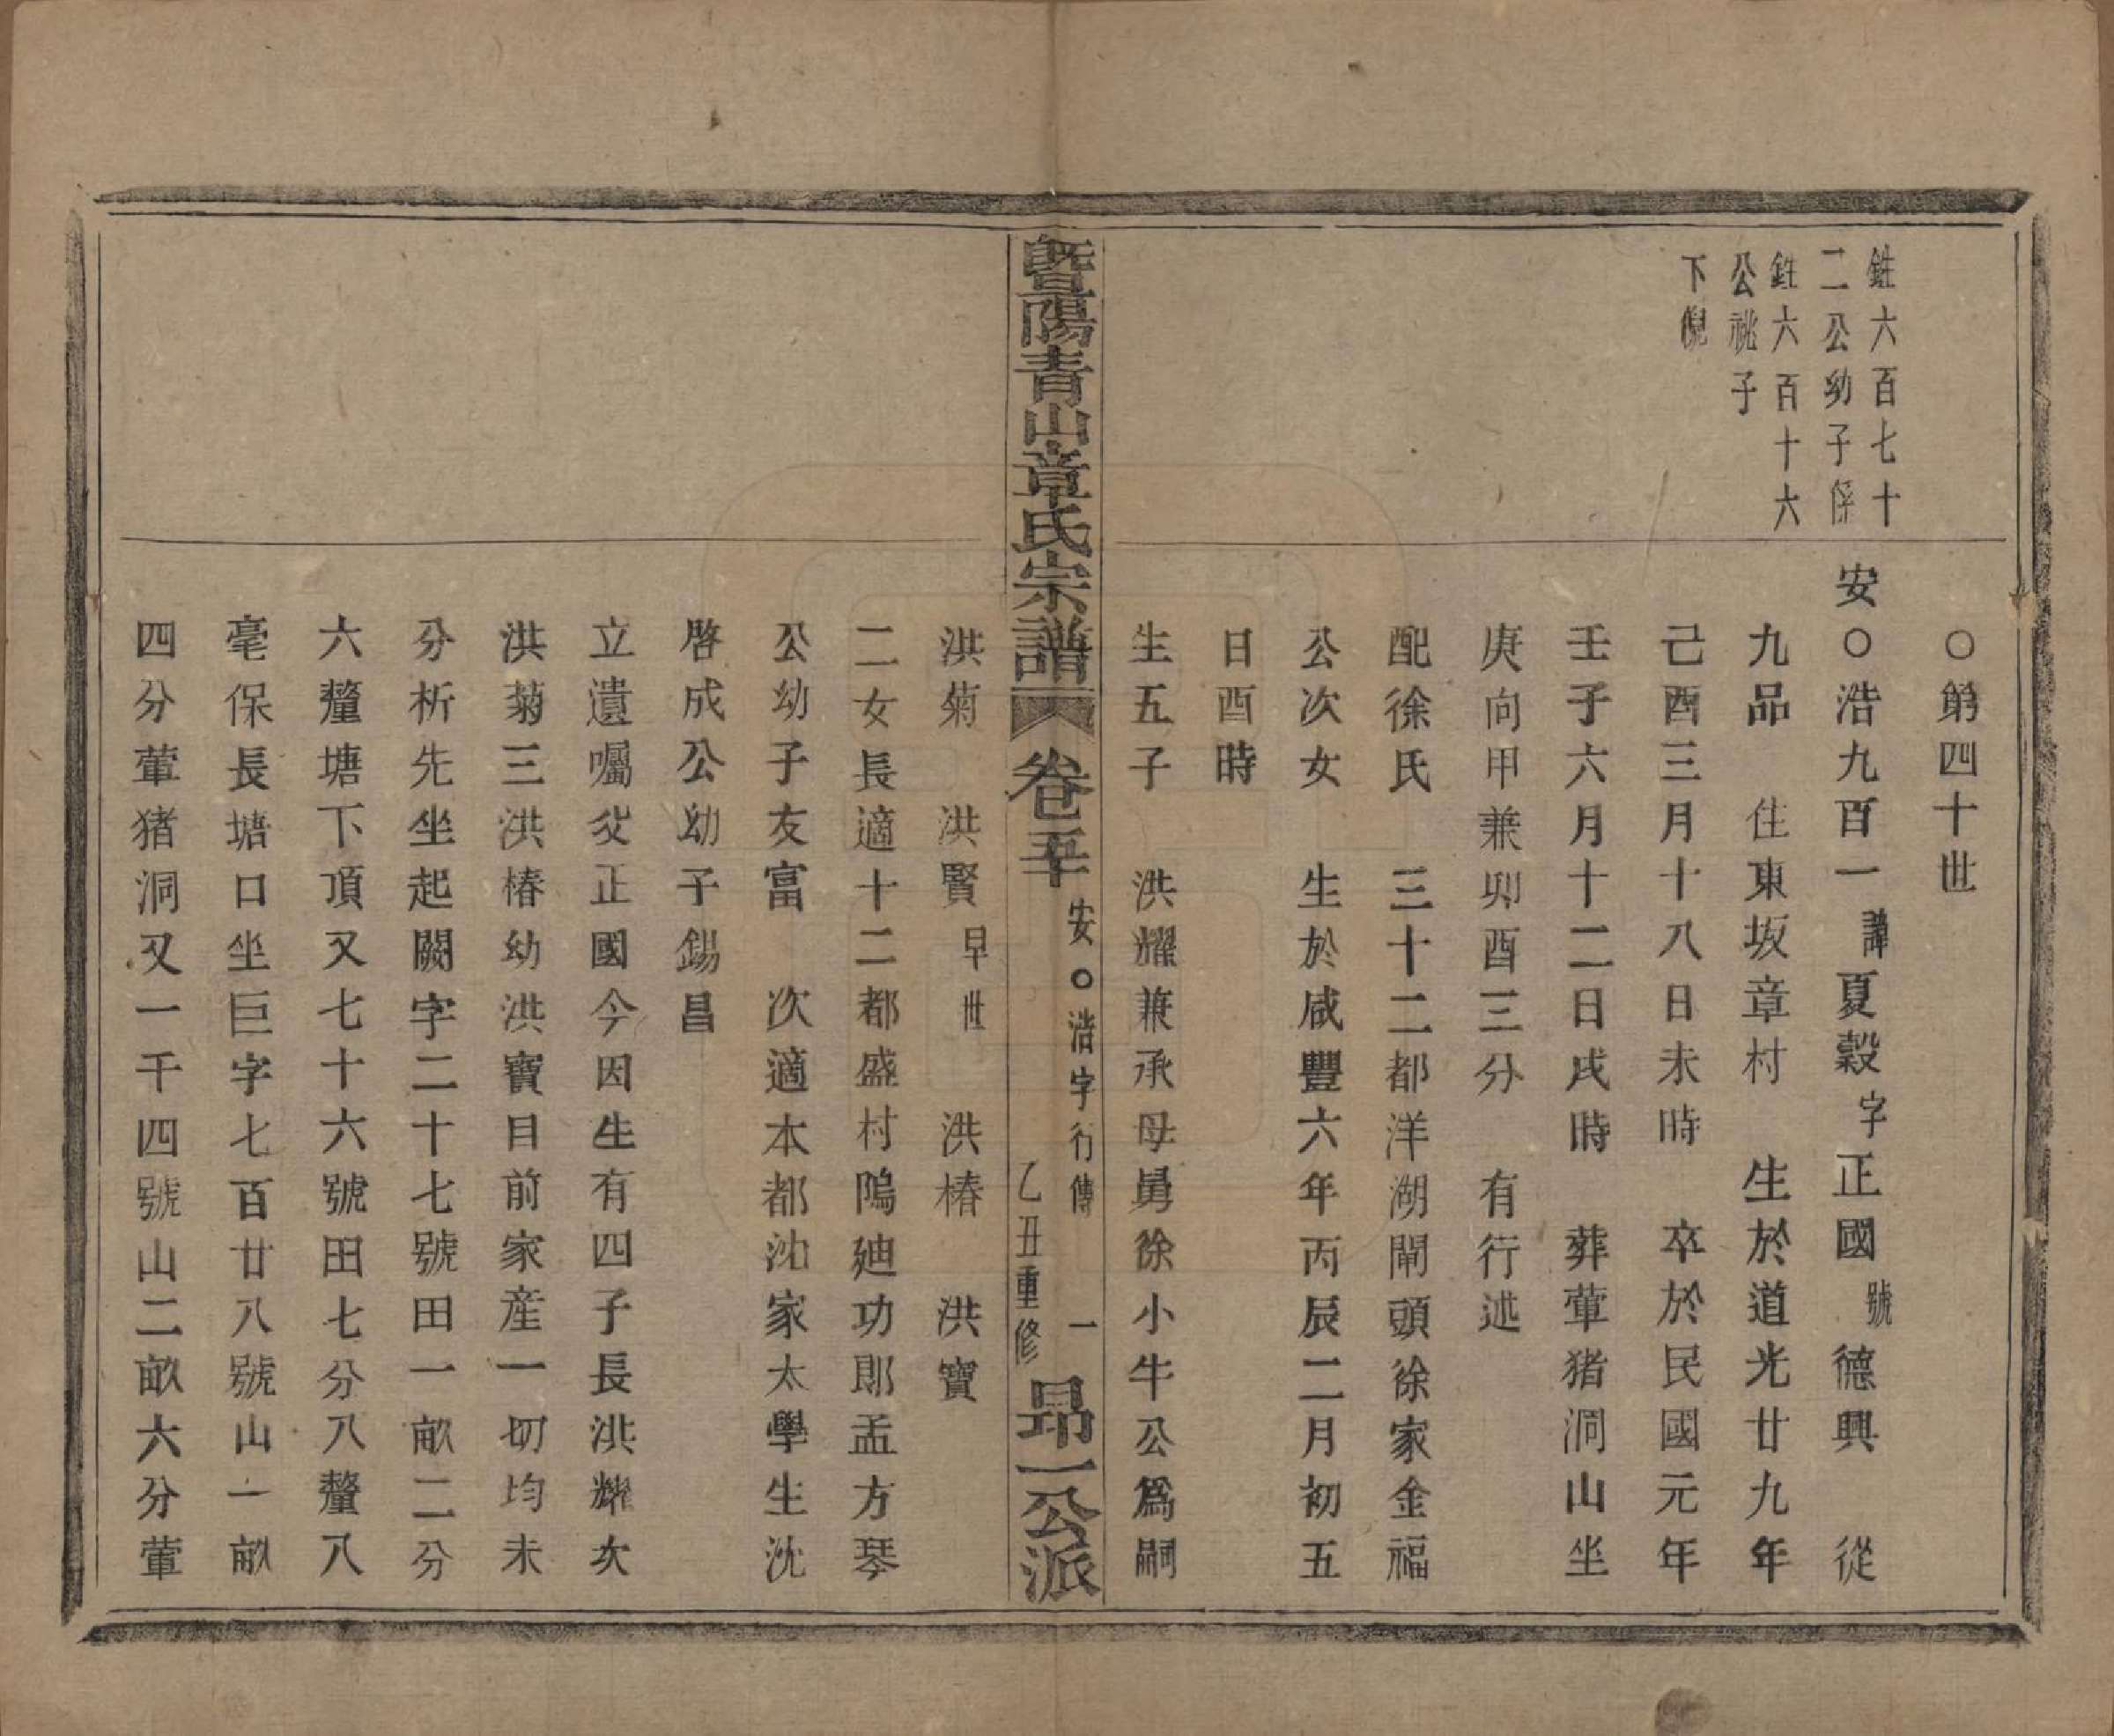 ○第四十世
鉎六百七十
二公幼子係
鉎六百十六
公祧子
下倪
安○浩九百一諱夏穀字正國號德興　從
九品　住東坂章村　生於道光廿九年
己酉三月十八日未時　卒於民國元年
壬子六月十二日戌時　葬葷猪洞山坐
庚向甲兼卯酉三分　有行述
配徐氏　三十二都洋湖閘頭徐家金福
公次女　生於咸豐六年丙辰二月初五
日酉時
生五子　洪耀兼承母舅徐小牛公爲嗣
暨陽青山章氏宗譜　卷五　安○浩字行傳　一　乙丑重修　昻一公派
洪菊　洪賢早世　洪椿　洪寶
二女長適十二都盛村隖廸功郎孟方琴
公幼子友富　次適本都沈家太學生沈
啓成公幼子錫昌
立遺囑父正國今因生有四子長洪耀次
洪菊三洪椿幼洪寶目前家産一切均未
分析先坐起闕字二十七號田一畝二分
六釐塘下頂又七十六號田七分八釐八
毫保長塘口坐巨字七百廿八號山一畝
四分葷猪洞又一千四號山二畝六分葷